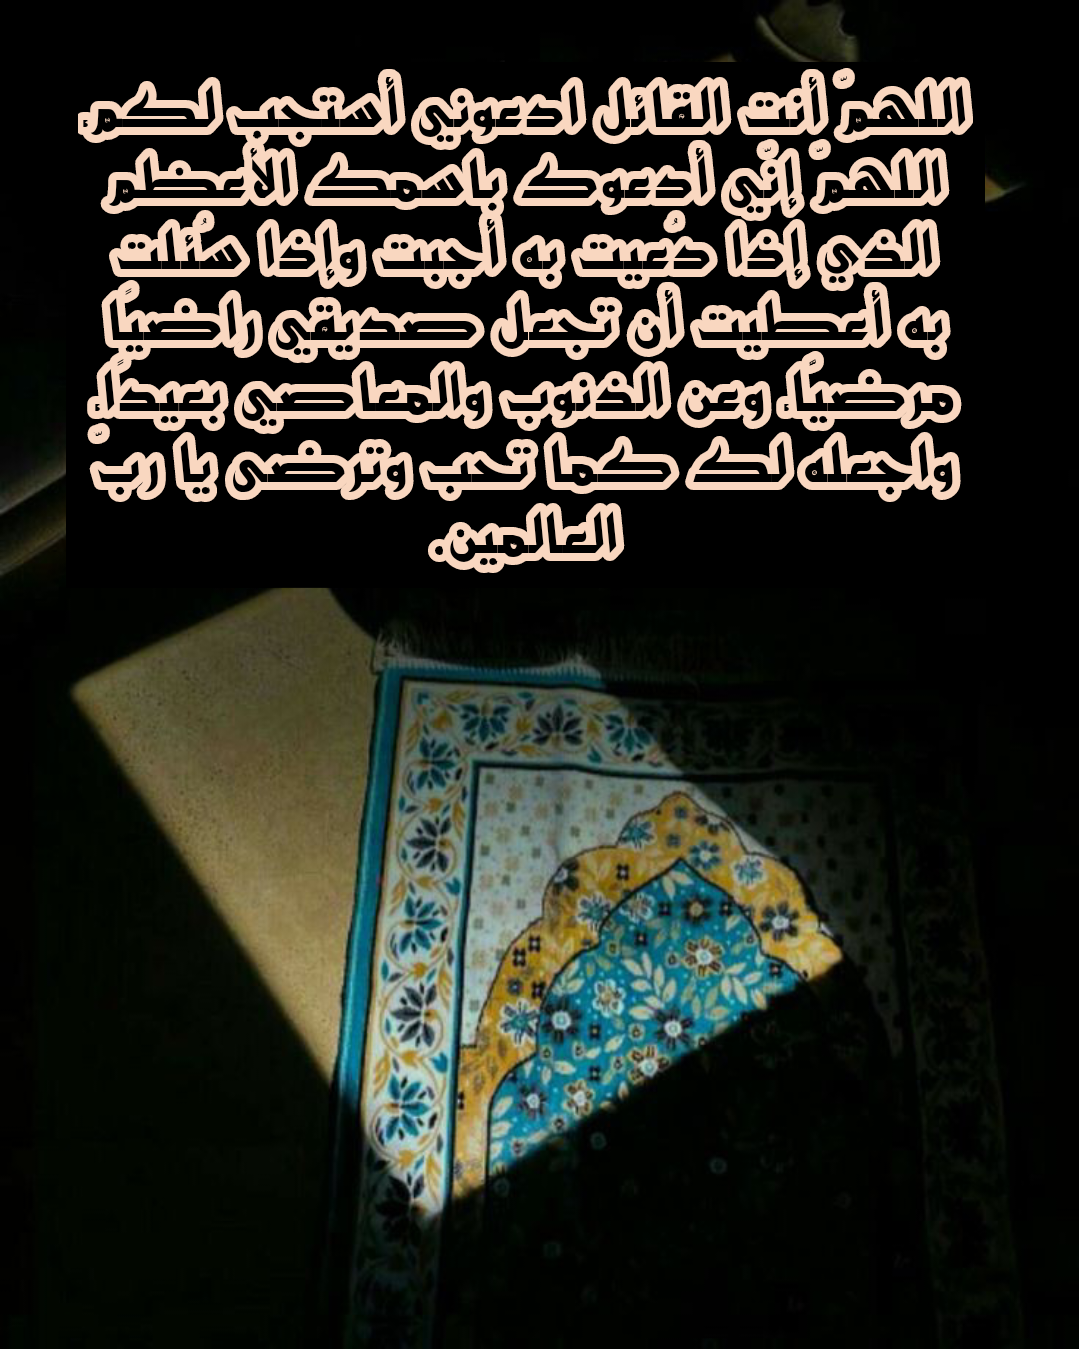 اللهمّ أنت القائل ادعوني أستجب لكم،
اللهمّ إنّي أدعوك باسمك الأعظم
الذي إذا دُعيت به أجبت وإذا سُئلت
به أعطيت أن تجعل صديقي راضيًا
مرضيًا، وعن الذنوب والمعاصي بعيدًا،
واجعله لك كما تحب وترضى يا ربّ
العالمين.